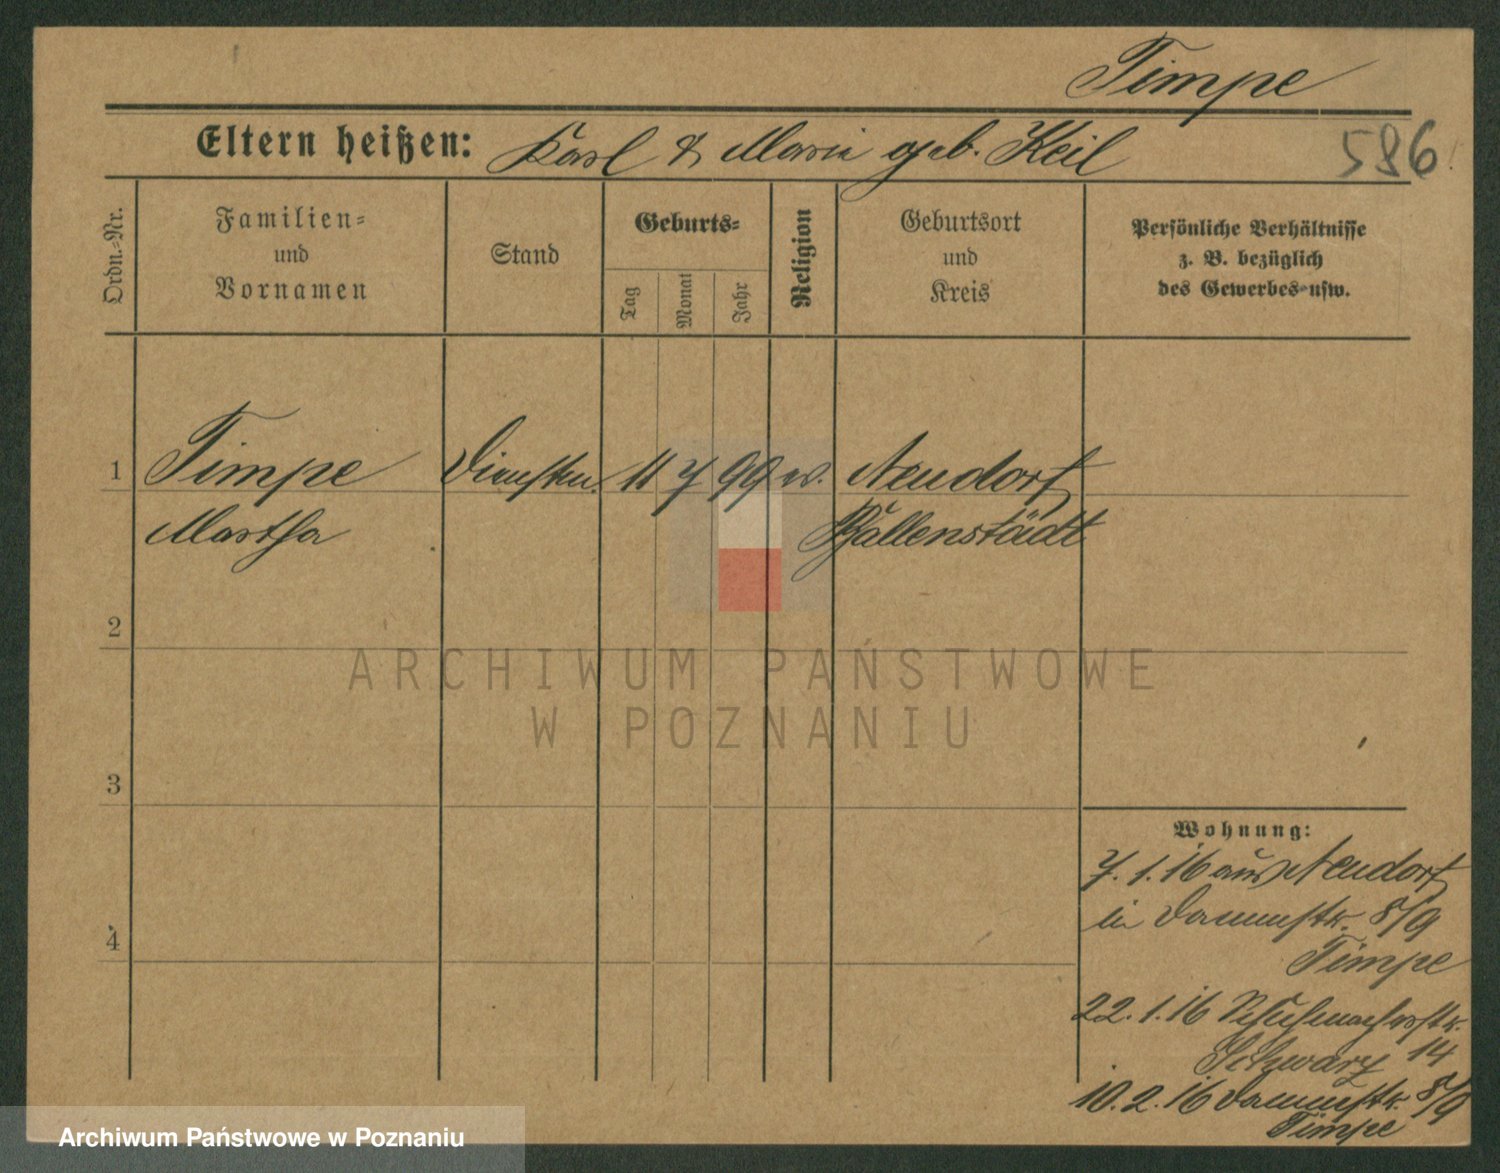 Timpe
Eltern heißen: Karl & Marie geb. Keil
586
Ordn.=Nr.
Familien=
und
Vornamen
Stand
Geburts=
Tag
Monat
Jahr
Religion
Geburtsort
und
Kreis
Persönliche Verhältnisse
z. B. bezüglich
des Gewerbes usw.
1 Timpe Dienstm. 11 7 99 ev. Neudorf
Martha Ballenstädt
2
ARCHIWUM PAŃSTWOWE
W POZNANIU
3
Wohnung:
7. 1. 16 aus Neudorf
in Dammstr. 8/9
Timpe
4
22. 1. 16 Schuhmacherstr.
Schwarz 14
10. 2. 16 Dammstr. 8/9
Timpe
Archiwum Państwowe w Poznaniu